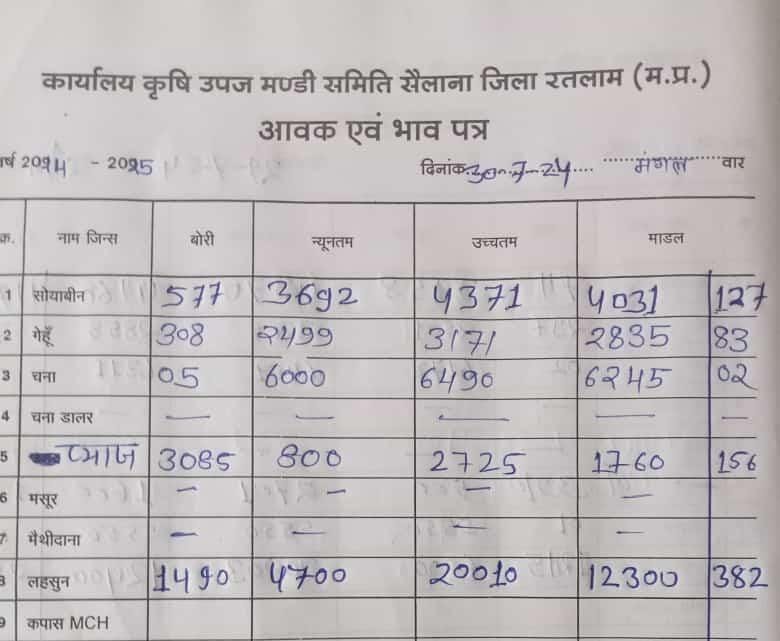 कार्यालय कृषि उपज मण्डी समिति सैलाना जिला रतलाम (म.प्र.)
आवक एवं भाव पत्र
र्ष 2024 - 2025 दिनांक 30-7-24 मंगल वार
क्र. नाम जिन्स बोरी न्यूनतम उच्चतम माडल
1 सोयाबीन 577 3692 4371 4031 127
2 गेहूँ 308 2499 3171 2835 83
3 चना 05 6000 6490 6245 02
4 चना डालर — — — — —
5 प्याज 3085 800 2725 1760 156
6 मसूर — — — —
7 मैथीदाना — — — —
8 लहसुन 1490 4700 20010 12300 382
9 कपास MCH